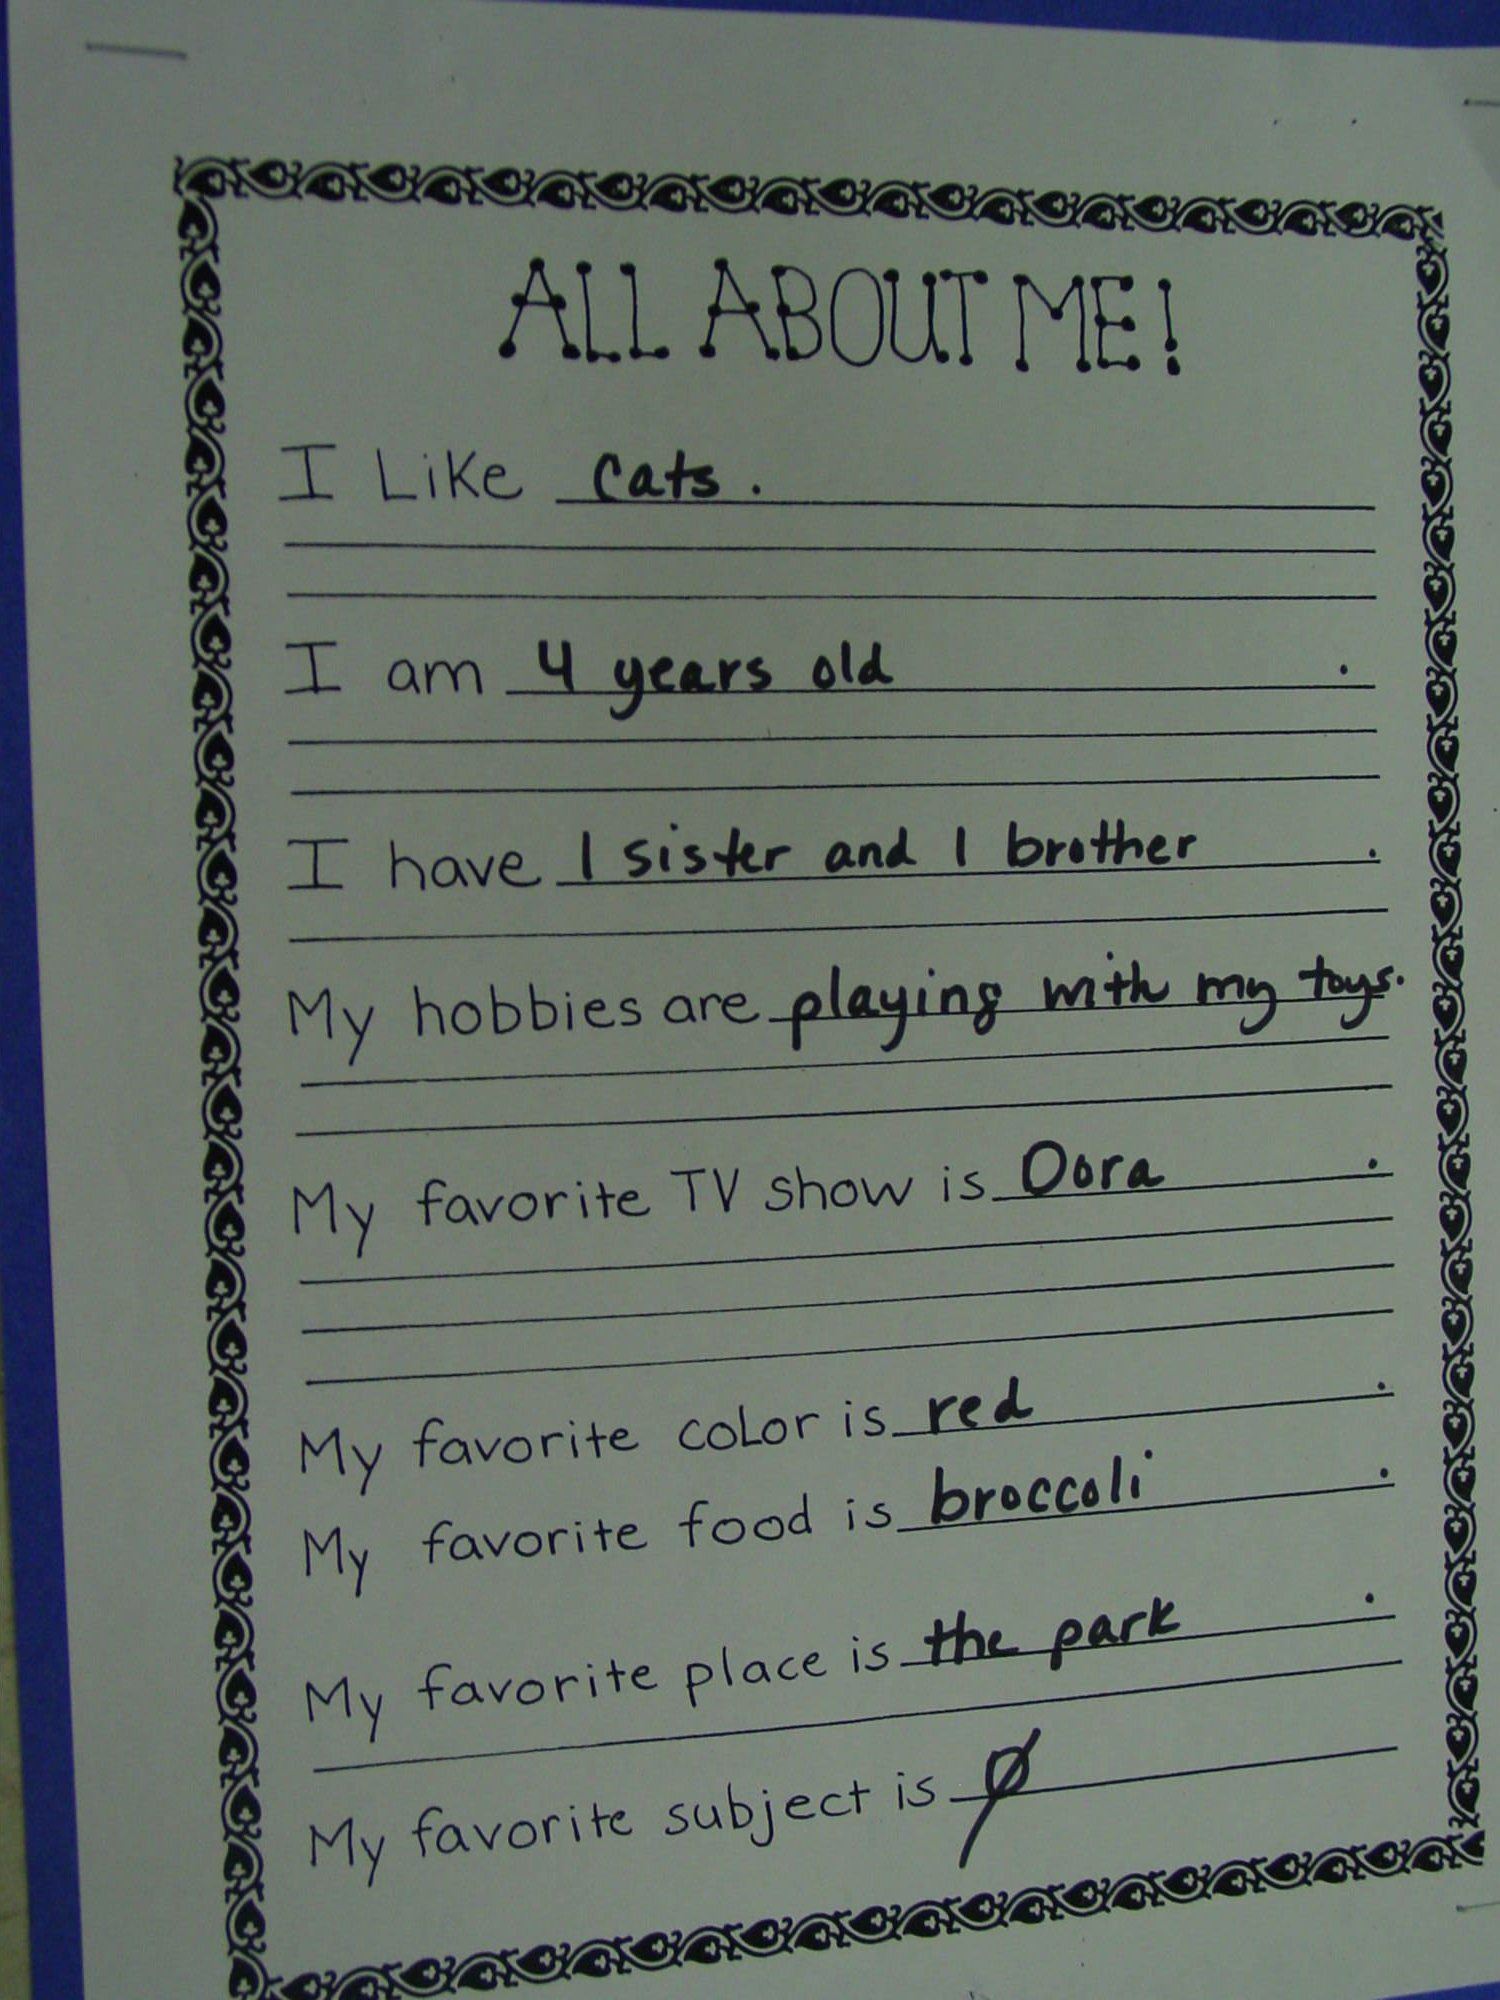 ALL ABOUT ME!
I Like cats.
I am 4 years old.
I have 1 sister and 1 brother.
My hobbies are playing with my toys.
My favorite TV show is Dora.
My favorite color is red.
My favorite food is broccoli.
My favorite place is the park.
My favorite subject is Ø